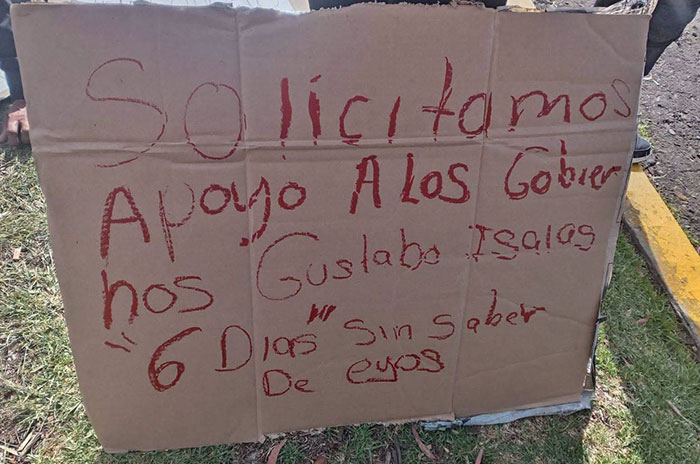 Solicitamos
Apoyo A Los Gobier
nos Gustabo Isaias
"6 Dias" Sin Saber
De eyos